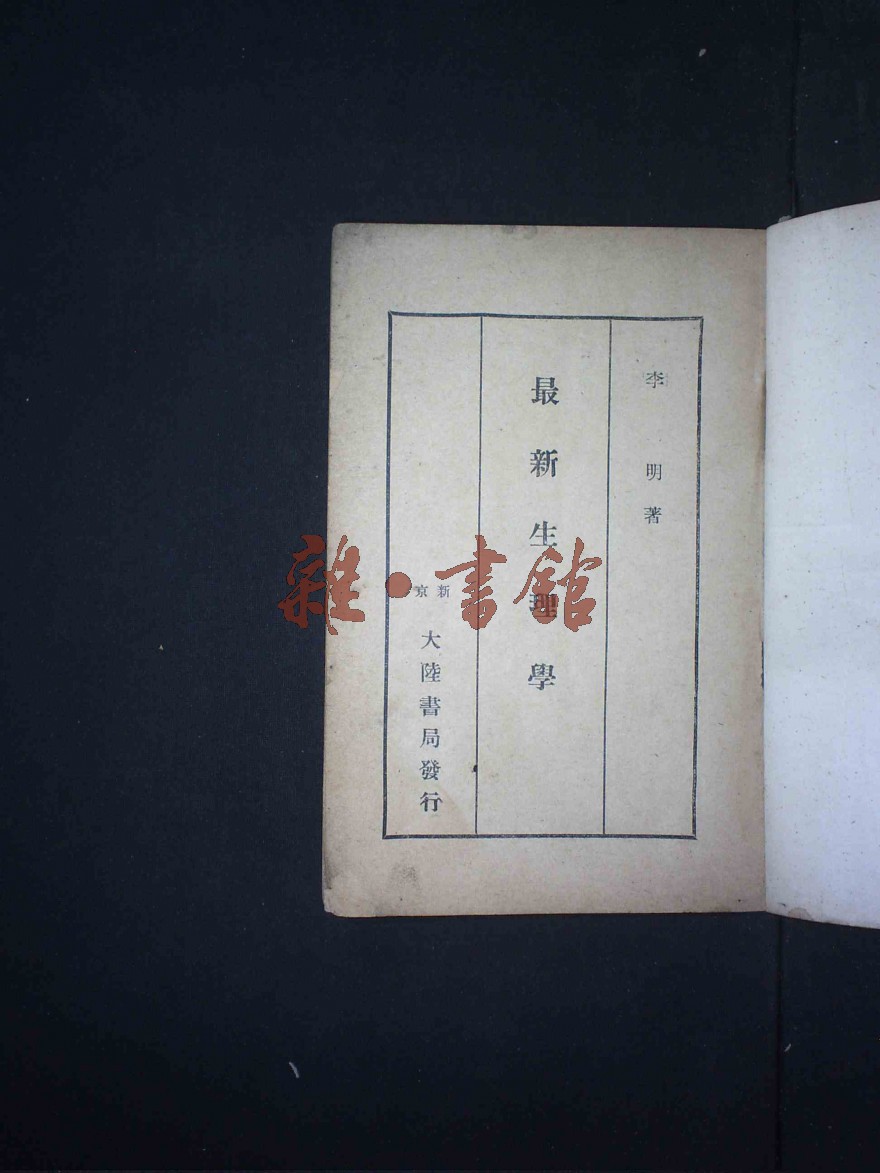 李明著
最新生理學
新京
大陸書局發行
雜·書館